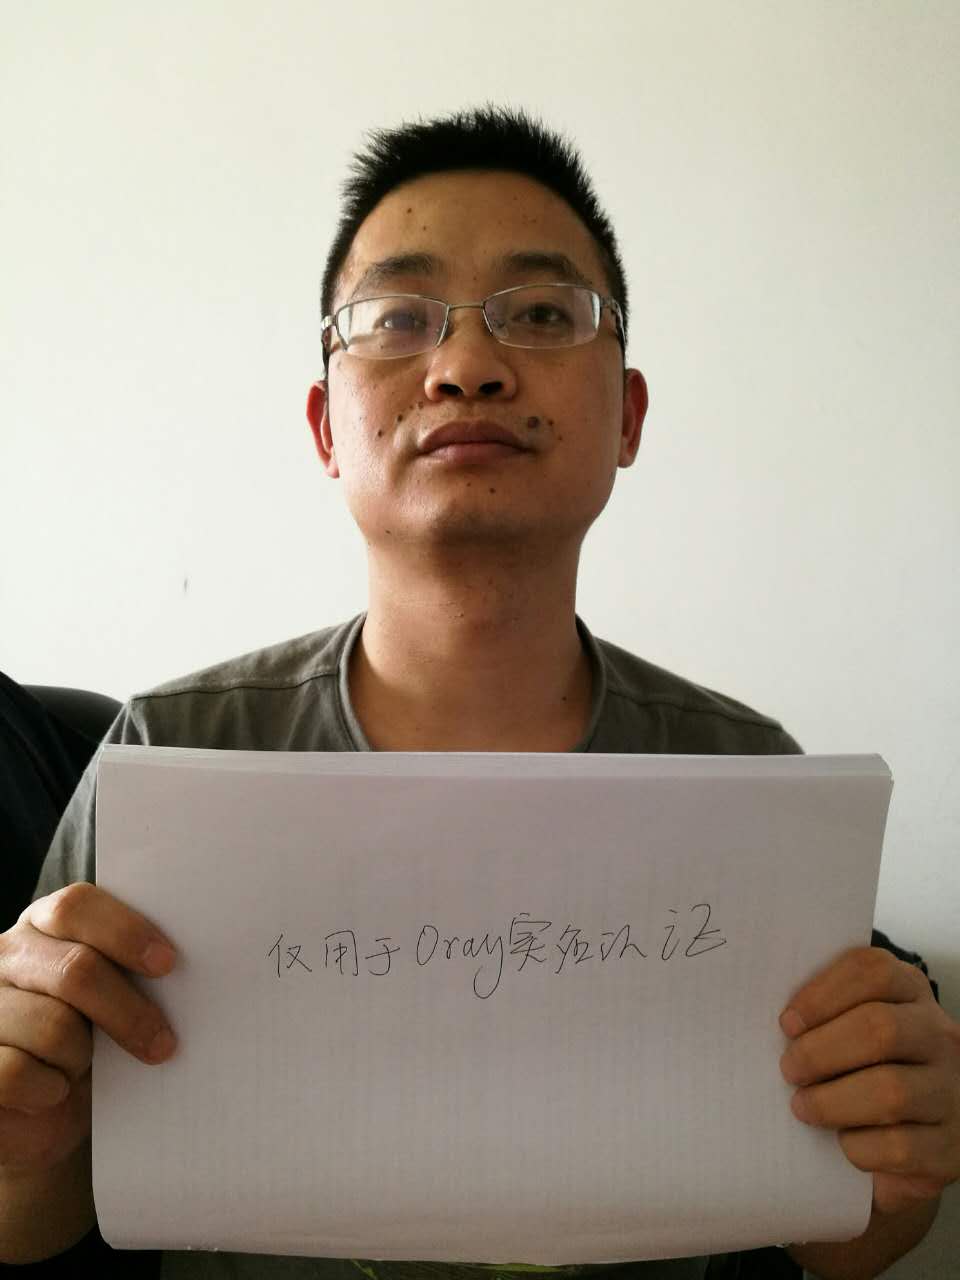 仅用于Oray实名认证